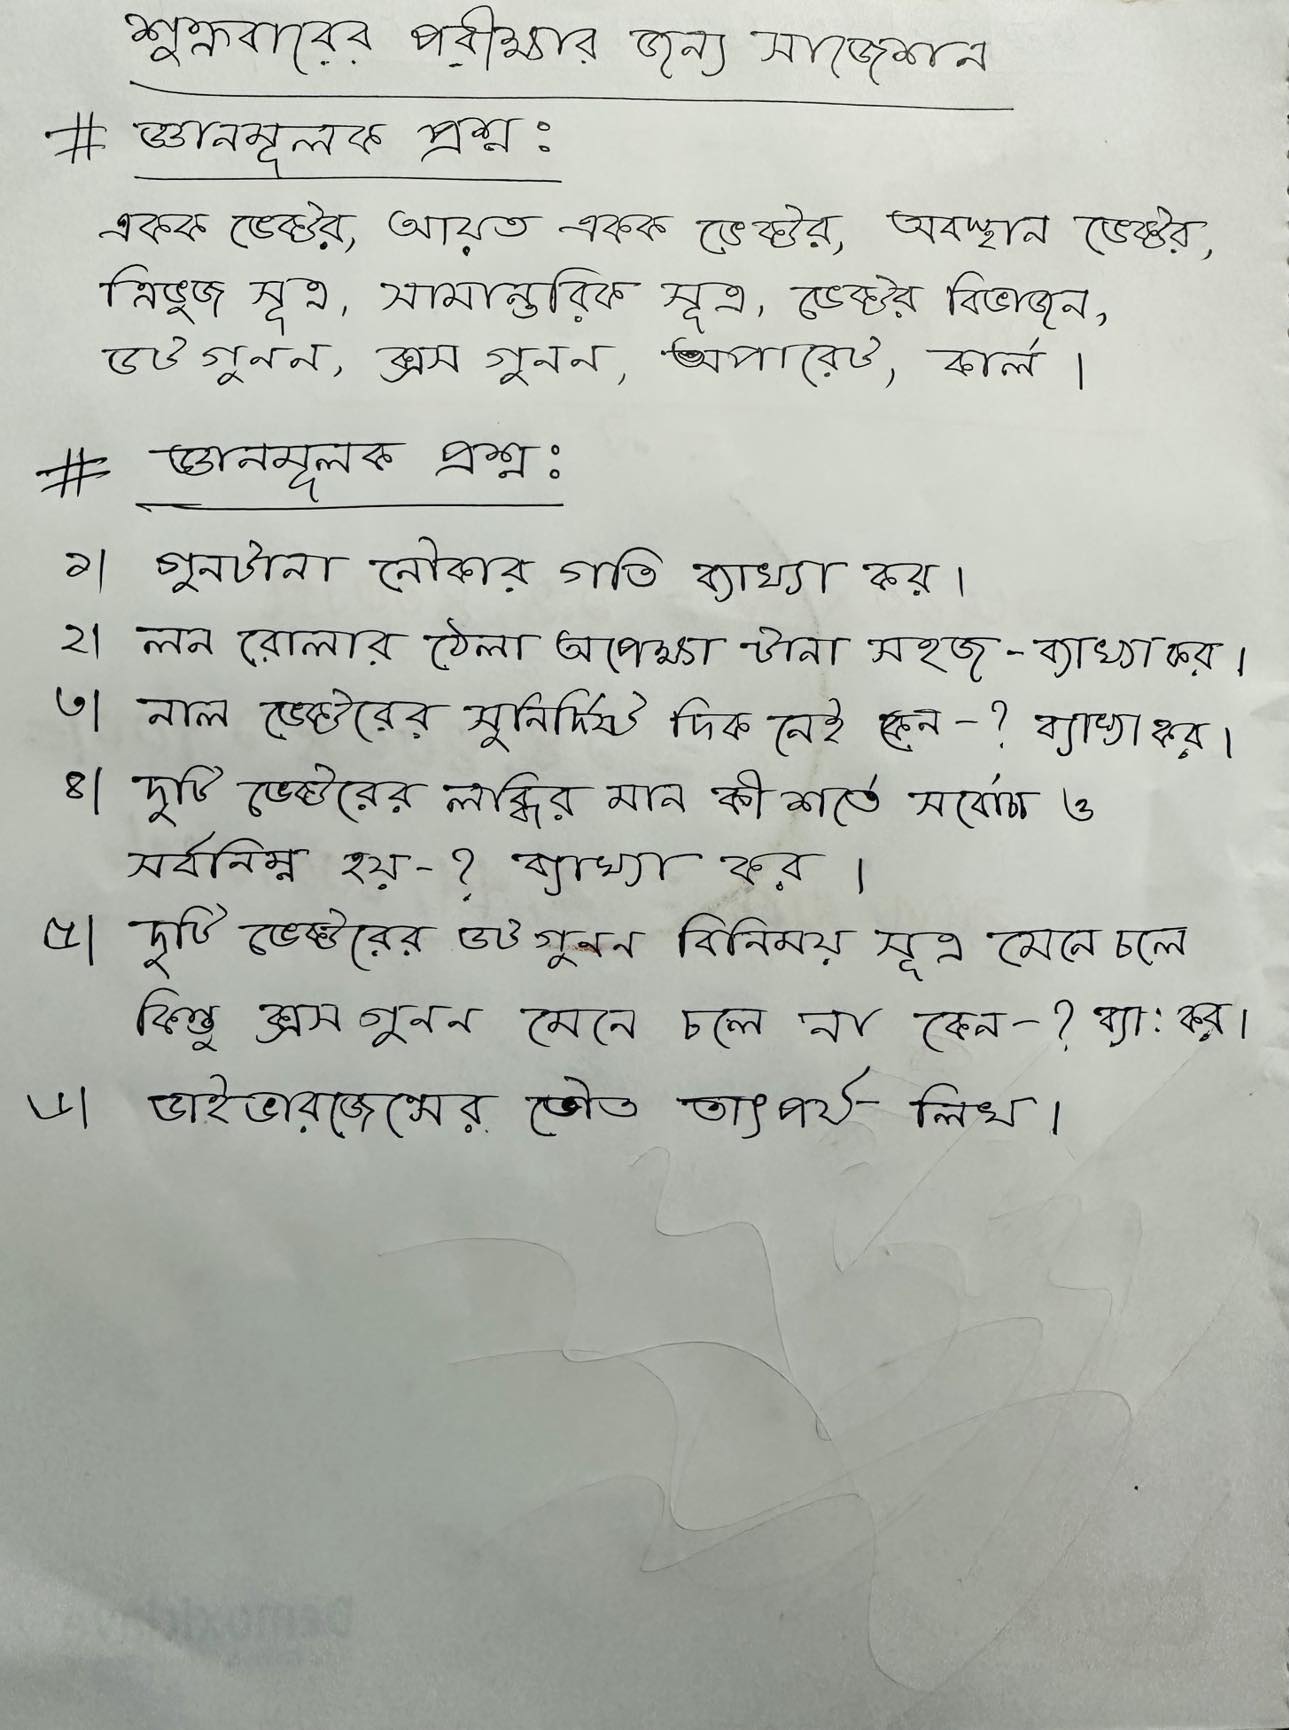 শুক্রবারের পরীক্ষার জন্য সাজেশান
# জ্ঞানমূলক প্রশ্ন:
একক ভেক্টর, আয়ত একক ভেক্টর, অবস্থান ভেক্টর,
ত্রিভুজ সূত্র, সামান্তরিক সূত্র, ভেক্টর বিভাজন,
ডট গুনন, ক্রস গুনন, অপারেট, কার্ল।
# জ্ঞানমূলক প্রশ্ন:
১। গুনটানা নৌকার গতি ব্যাখ্যা কর।
২। লন রোলার ঠেলা অপেক্ষা টানা সহজ - ব্যাখ্যা কর।
৩। নাল ভেক্টরের সুনির্দিষ্ট দিক নেই কেন -? ব্যাখ্যা কর।
৪। দুটি ভেক্টরের লব্ধির মান কী শর্তে সর্বোচ্চ ও
সর্বনিম্ন হয় -? ব্যাখ্যা কর।
৫। দুটি ভেক্টরের ডট গুনন বিনিময় সূত্র মেনে চলে
কিন্তু ক্রস গুনন মেনে চলে না কেন -? ব্যা: কর।
৬। ডাইভারজেন্সের ভৌত তাৎপর্য লিখ।